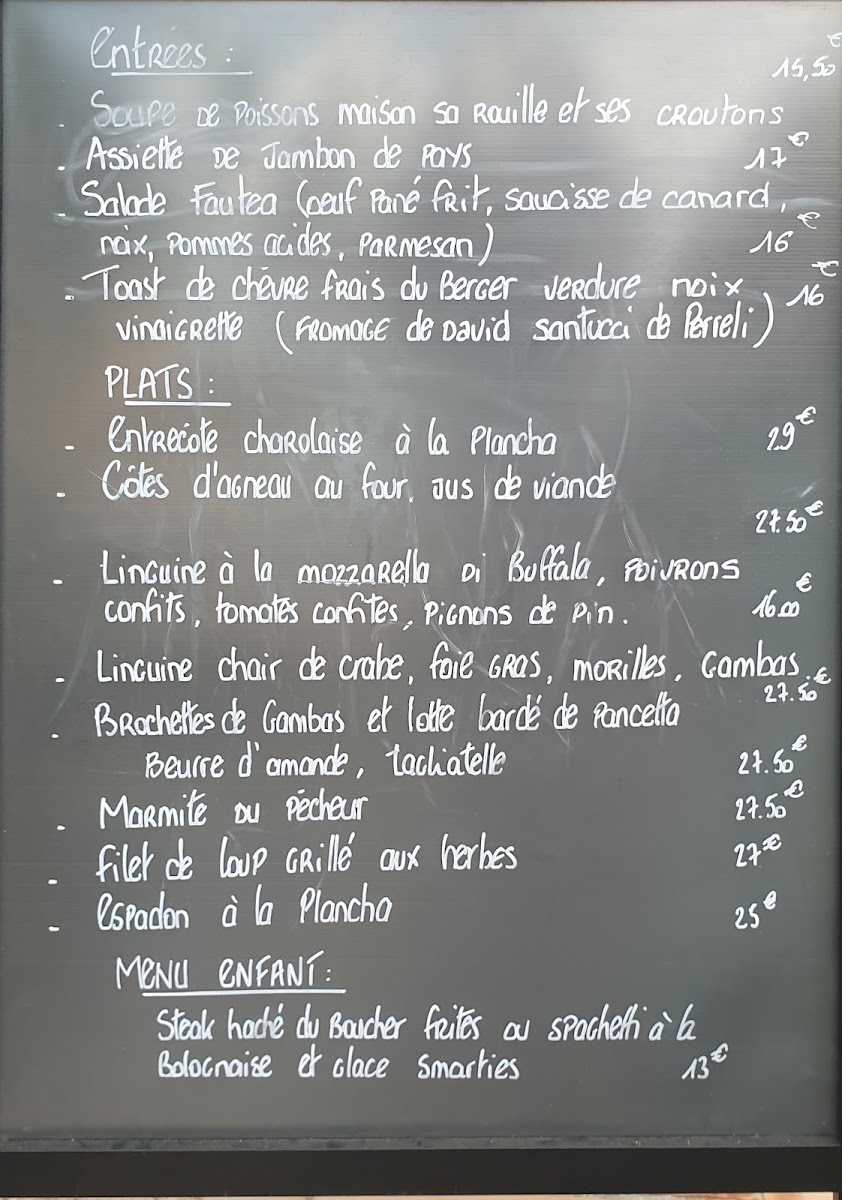 Entrées :
15,50€
- Soupe de Poissons maison sa Rouille et ses croutons
- Assiette de Jambon de pays 17€
- Salade Fautea (oeuf pané frit, saucisse de canard,
noix, pommes acides, parmesan) 16€
- Toast de chèvre frais du Berger verdure noix 16€
vinaigrette (fromage de David Santucci de Perreli)
PLATS :
- Entrecôte charolaise à la Plancha 29€
- Côtes d'agneau au four, jus de viande
27.50€
- Linguine à la mozzarella Di Buffala, poivrons
confits, tomates confites, pignons de pin. 16.00€
- Linguine chair de crabe, foie gras, morilles, Gambas.
27.50€
- Brochettes de Gambas et lotte bardé de pancetta
Beurre d'amande, tagliatelle 27.50€
- Marmite du pêcheur 27.50€
- filet de loup grillé aux herbes 27€
- espadon à la Plancha 25€
MENU ENFANT :
Steak haché du Boucher frites ou spaghetti à la
Bolognaise et glace Smarties 13€